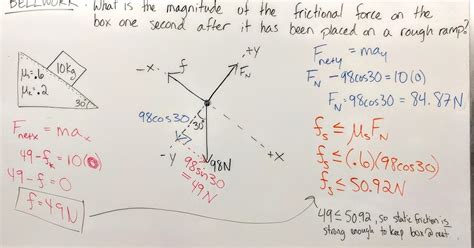 BELLWORK: What is the magnitude of the frictional force on the
box one second after it has been placed on a rough ramp?
10kg
μs=.6
μk=.2
30°
Fnetx = max
49-fk = 10(0)
49-f=0
f=49N
+y
-x
f
FN
98cos30
30°
-y
98N
98sin30
=49N
+x
Fnety = may
FN-98cos30=10(0)
FN=98cos30=84.87N
fs≤μsFN
fs≤(.6)(98cos30)
fs≤50.92N
49≤50.92, so static friction is
strong enough to keep box @ rest.